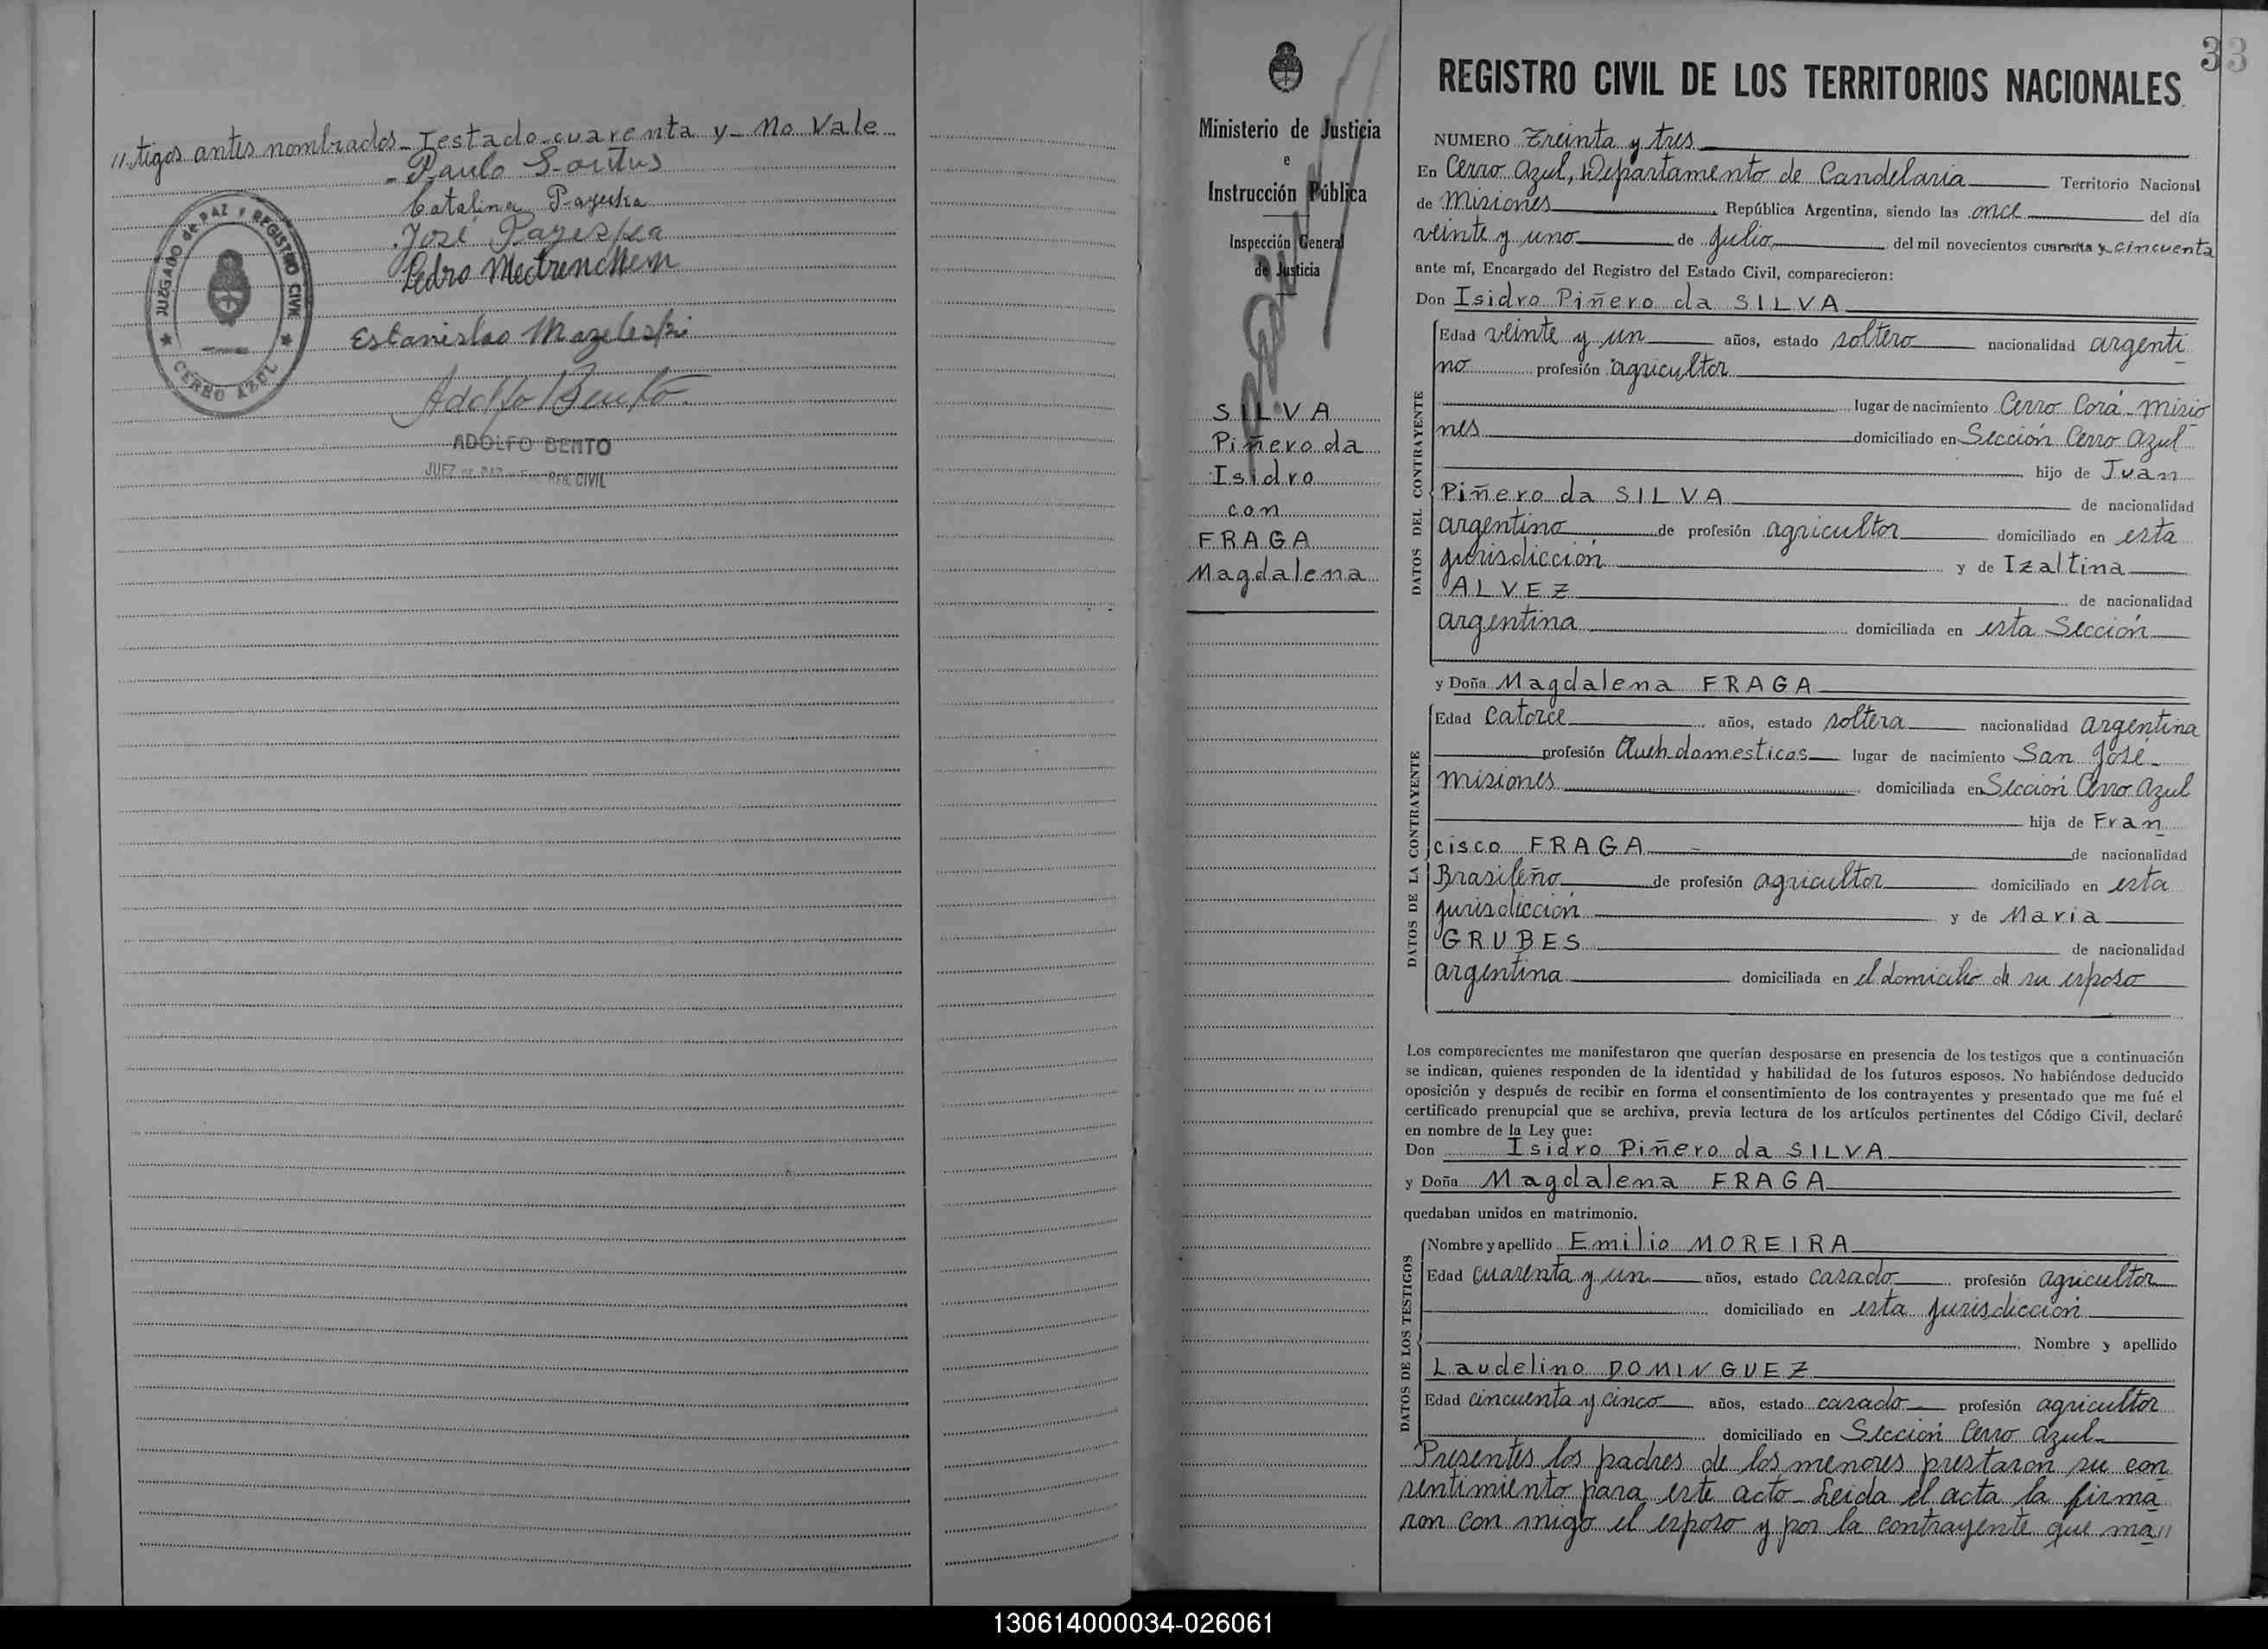 // tigos antes nombrados - Testado - cuarenta y - No Vale
Paulo
Catalina Payeska
José Payeska
Pedro
Estanislao
Adolfo Bento
ADOLFO BENTO
JUEZ DE PAZ REG. CIVIL
JUZGADO de PAZ Y REGISTRO CIVIL
CERRO AZUL
33
Ministerio de Justicia
e
Instrucción Pública
Inspección General
de Justicia
SILVA
Piñero da
Isidro
con
FRAGA
Magdalena
REGISTRO CIVIL DE LOS TERRITORIOS NACIONALES
NUMERO Treinta y tres
En Cerro Azul, Departamento de Candelaria Territorio Nacional
de Misiones República Argentina, siendo las once del día
veinte y uno de Julio del mil novecientos cuarenta y cincuenta
ante mí, Encargado del Registro del Estado Civil, comparecieron:
Don Isidro Piñero da SILVA
DATOS DEL CONTRAYENTE
Edad veinte y un años, estado soltero nacionalidad argenti
no profesión agricultor
lugar de nacimiento Cerro Corá - Misio
nes domiciliado en Sección Cerro Azul
hijo de Juan
Piñero da SILVA de nacionalidad
argentino de profesión agricultor domiciliado en esta
jurisdicción y de Izaltina
ALVEZ de nacionalidad
argentina domiciliada en esta Sección
y Doña Magdalena FRAGA
DATOS DE LA CONTRAYENTE
Edad catorce años, estado soltera nacionalidad argentina
profesión Queh domesticos lugar de nacimiento San José -
Misiones domiciliada en Sección Cerro Azul
hija de Fran
cisco FRAGA de nacionalidad
Brasileño de profesión agricultor domiciliado en esta
jurisdicción y de Maria
GRUBES de nacionalidad
argentina domiciliada en el domicilio de su esposo
Los comparecientes me manifestaron que querían desposarse en presencia de los testigos que a continuación
se indican, quienes responden de la identidad y habilidad de los futuros esposos. No habiéndose deducido
oposición y después de recibir en forma el consentimiento de los contrayentes y presentado que me fué el
certificado prenupcial que se archiva, previa lectura de los artículos pertinentes del Código Civil, declaré
en nombre de la Ley que:
Don Isidro Piñero da SILVA
y Doña Magdalena FRAGA
quedaban unidos en matrimonio.
DATOS DE LOS TESTIGOS
Nombre y apellido Emilio MOREIRA
Edad cuarenta y un años, estado casado profesión agricultor
domiciliado en esta jurisdicción
Nombre y apellido
Laudelino DOMINGUEZ
Edad cincuenta y cinco años, estado casado profesión agricultor
domiciliado en Sección Cerro Azul
Presentes los padres de los menores prestaron su con
sentimiento para este acto - Leida el acta la firma
ron con migo el esposo y por la contrayente que ma //
130614000034-026061